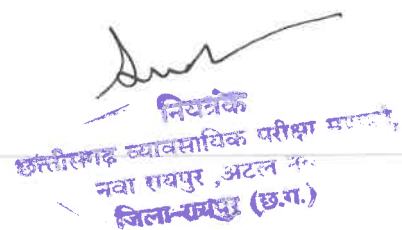 नियंत्रक
छत्तीसगढ़ व्यावसायिक परीक्षा
नवा रायपुर ,अटल
जिला-रायपुर (छ.ग.)